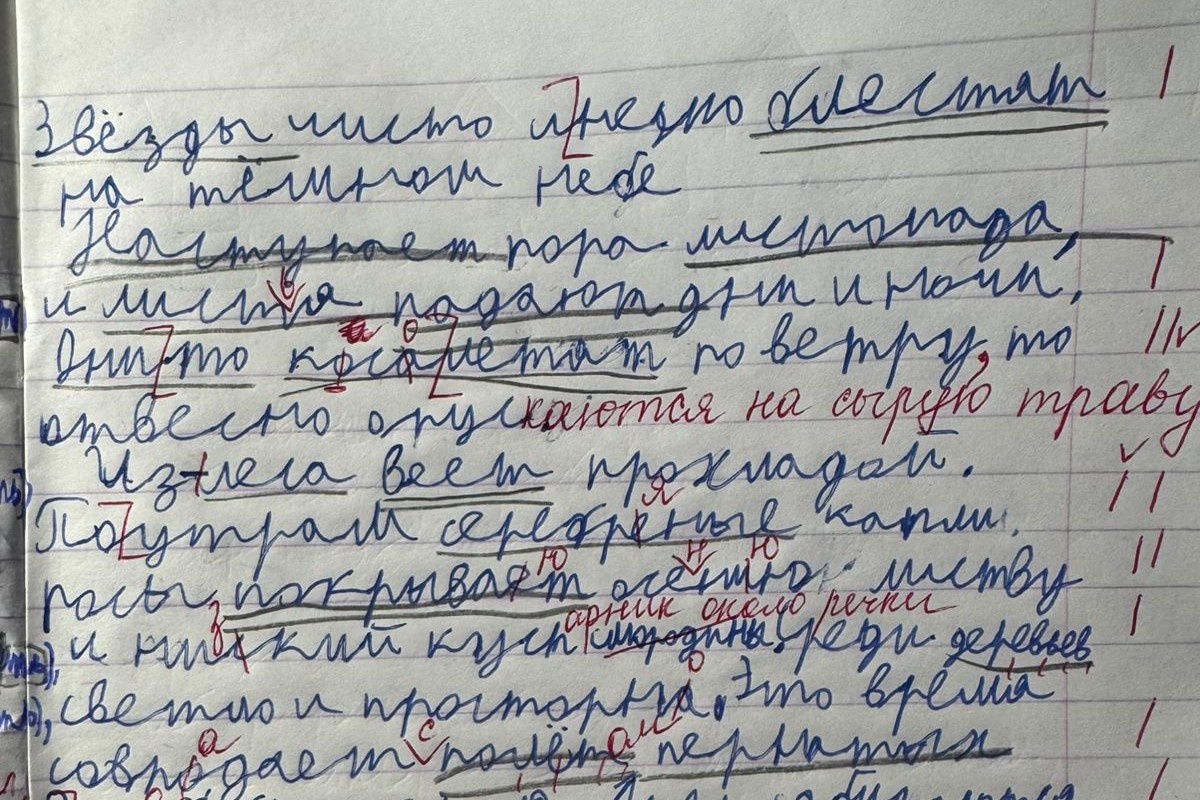 Звёзды чисто и нежно блестят
на тёмном небе
Наступает пора листопада,
и листья падают дни и ночи,
Они то косо летят по ветру, то
отвесно опускаются на сырую траву
Из леса веет прохладой.
По утрам серебряные капли
росы покрывают осеннюю листву
и низкий кустарник около речки
смородины, среди деревьев
светло и просторно. Это время
совпадает с полётом пернатых